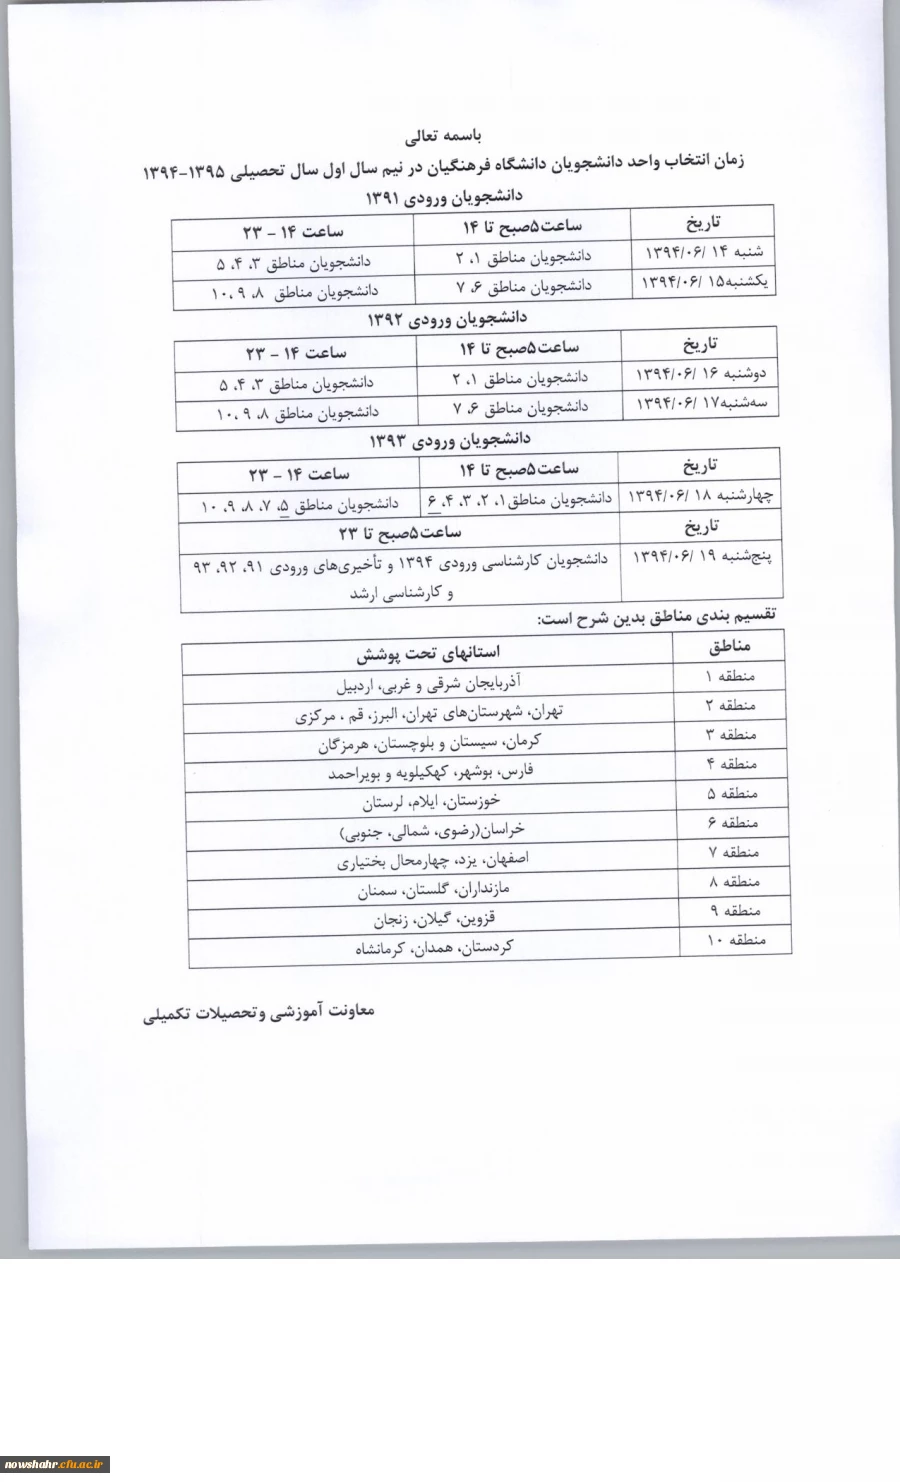 باسمه تعالی
زمان انتخاب واحد دانشجویان دانشگاه فرهنگیان در نیم سال اول سال تحصیلی ۱۳۹۵-۱۳۹۴
دانشجویان ورودی ۱۳۹۱
تاریخ ساعت۵صبح تا ۱۴ ساعت ۱۴ - ۲۳
شنبه ۱۴ /۱۳۹۴/۰۶ دانشجویان مناطق ۱، ۲ دانشجویان مناطق ۳، ۴، ۵
یکشنبه۱۵ /۱۳۹۴/۰۶ دانشجویان مناطق ۶، ۷ دانشجویان مناطق ۸، ۹، ۱۰
دانشجویان ورودی ۱۳۹۲
تاریخ ساعت۵صبح تا ۱۴ ساعت ۱۴ - ۲۳
دوشنبه ۱۶ /۱۳۹۴/۰۶ دانشجویان مناطق ۱، ۲ دانشجویان مناطق ۳، ۴، ۵
سه‌شنبه۱۷ /۱۳۹۴/۰۶ دانشجویان مناطق ۶، ۷ دانشجویان مناطق ۸، ۹، ۱۰
دانشجویان ورودی ۱۳۹۳
تاریخ ساعت۵صبح تا ۱۴ ساعت ۱۴ - ۲۳
چهارشنبه ۱۸ /۱۳۹۴/۰۶ دانشجویان مناطق۱، ۲، ۳، ۴، ۶ دانشجویان مناطق ۵، ۷، ۸، ۹، ۱۰
تاریخ ساعت۵صبح تا ۲۳
پنج‌شنبه ۱۹ /۱۳۹۴/۰۶ دانشجویان کارشناسی ورودی ۱۳۹۴ و تأخیری‌های ورودی ۹۱، ۹۲، ۹۳
و کارشناسی ارشد
تقسیم بندی مناطق بدین شرح است:
مناطق استانهای تحت پوشش
منطقه ۱ آذربایجان شرقی و غربی، اردبیل
منطقه ۲ تهران، شهرستان‌های تهران، البرز، قم ، مرکزی
منطقه ۳ کرمان، سیستان و بلوچستان، هرمزگان
منطقه ۴ فارس، بوشهر، کهکیلویه و بویراحمد
منطقه ۵ خوزستان، ایلام، لرستان
منطقه ۶ خراسان(رضوی، شمالی، جنوبی)
منطقه ۷ اصفهان، یزد، چهارمحال بختیاری
منطقه ۸ مازنداران، گلستان، سمنان
منطقه ۹ قزوین، گیلان، زنجان
منطقه ۱۰ کردستان، همدان، کرمانشاه
معاونت آموزشی وتحصیلات تکمیلی
nowshahr.cfu.ac.ir